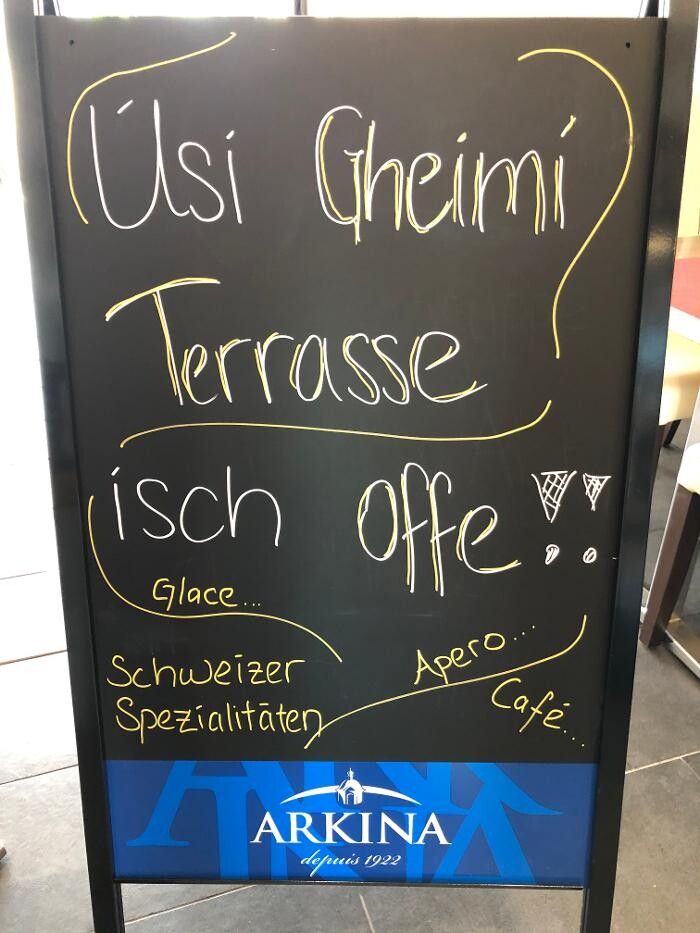 Üsi Gheimi
Terrasse
isch Offe!!
Glace...
Schweizer
Spezialitäten
Apero...
Café...
ARKINA
depuis 1922